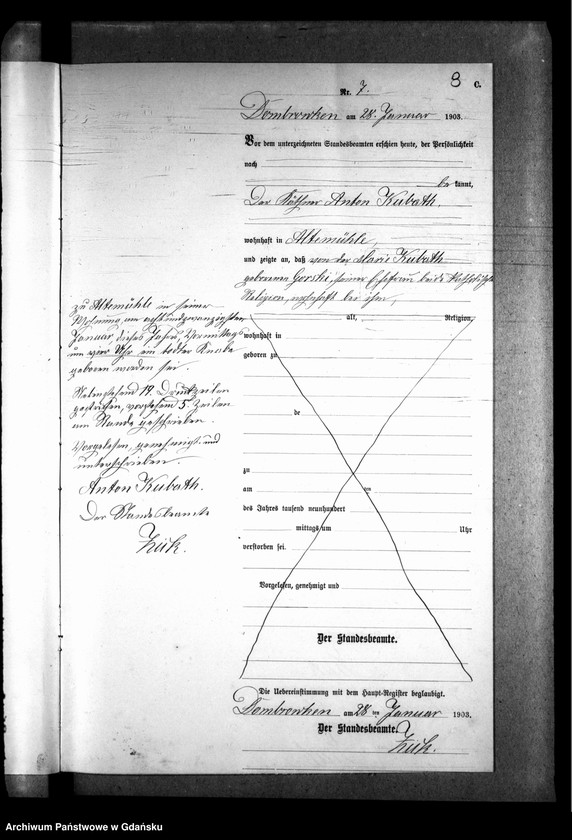 8 C.
Nr. 7.
Dombrowken am 28. Januar 1903.
Vor dem unterzeichneten Standesbeamten erschien heute, der Persönlichkeit
nach
be kannt,
Der Käthner Anton Kubath.
wohnhaft in Altemühle,
und zeigte an, daß von der Marie Kubath
geborenen Gorski, seiner Ehefrau beide katholischer
Religion, wohnhaft bei ihm,
zu Altemühle in seiner
Wohnung am achtundzwanzigsten
Januar dieses Jahres, Vormittags
um vier Uhr ein todter Knabe
geboren worden sei.
Nebenstehend 19. Druckzeilen
gestrichen, vorstehend 5. Zeilen
am Rande geschrieben.
Vorgelesen, genehmigt und
unterschrieben.
Anton Kubath.
Der Standesbeamte
alt, Religion,
wohnhaft in
geboren zu
de
zu
am ten
des Jahres tausend neunhundert
mittags um Uhr
verstorben sei.
Vorgelesen, genehmigt und
Der Standesbeamte.
Die Uebereinstimmung mit dem Haupt-Register beglaubigt.
Dombrowken am 28 ten Januar 1903.
Der Standesbeamte.
Archiwum Państwowe w Gdańsku